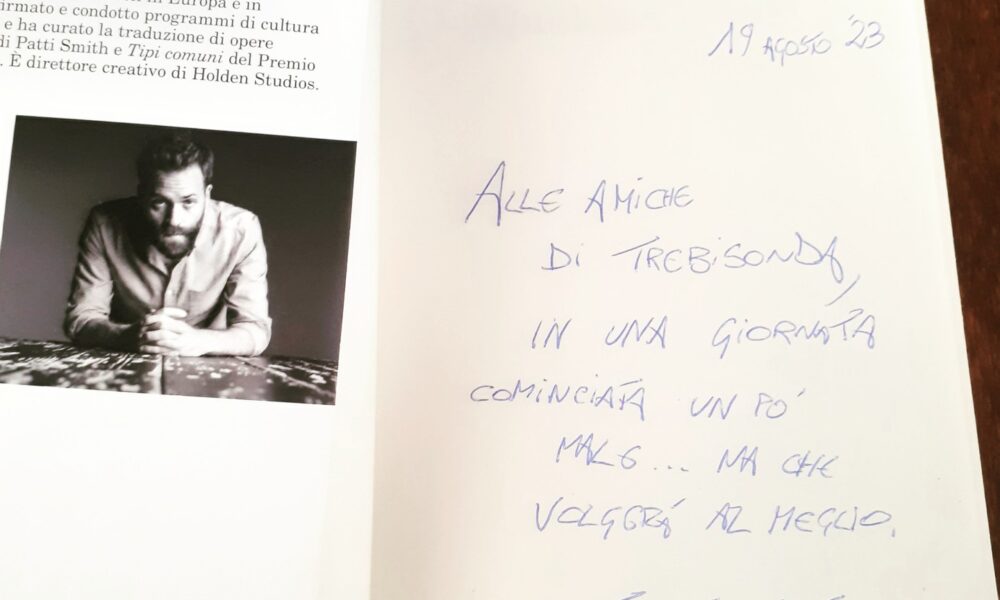 in Europa e in
firmato e condotto programmi di cultura
e ha curato la traduzione di opere
di Patti Smith e Tipi comuni del Premio
. È direttore creativo di Holden Studios.
19 AGOSTO '23
ALLE AMICHE
DI TREBISONDA,
IN UNA GIORNATA
COMINCIATA UN PO'
MALE... MA CHE
VOLGERÀ AL MEGLIO.